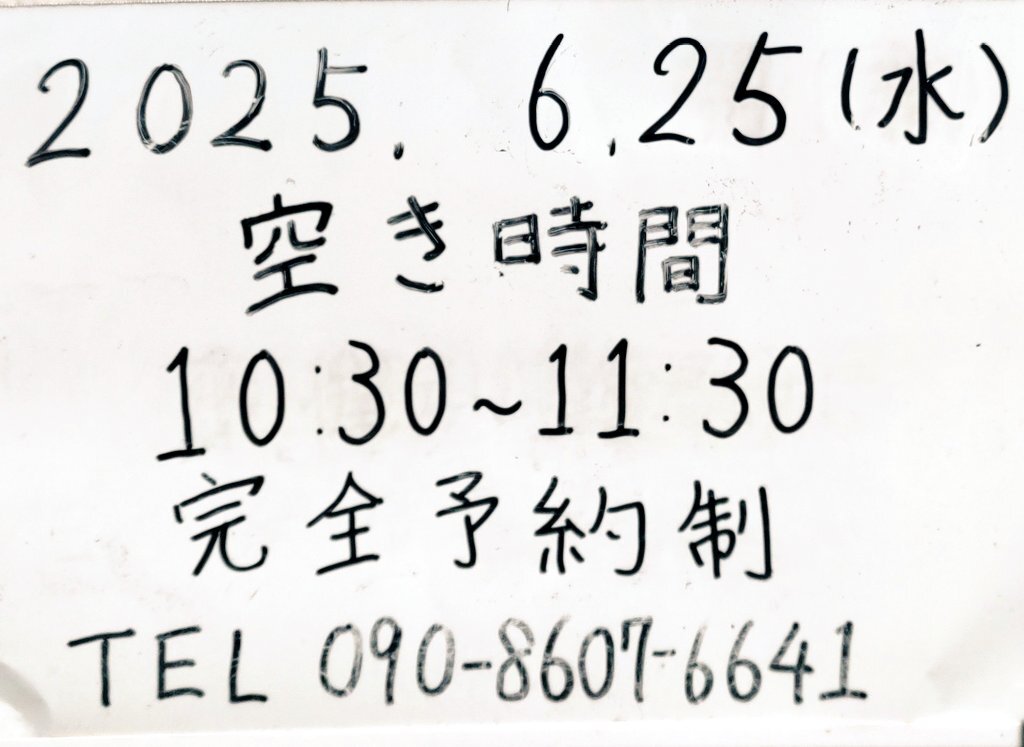 2025. 6.25(水)
空き時間
10:30~11:30
完全予約制
TEL 090-8607-6641